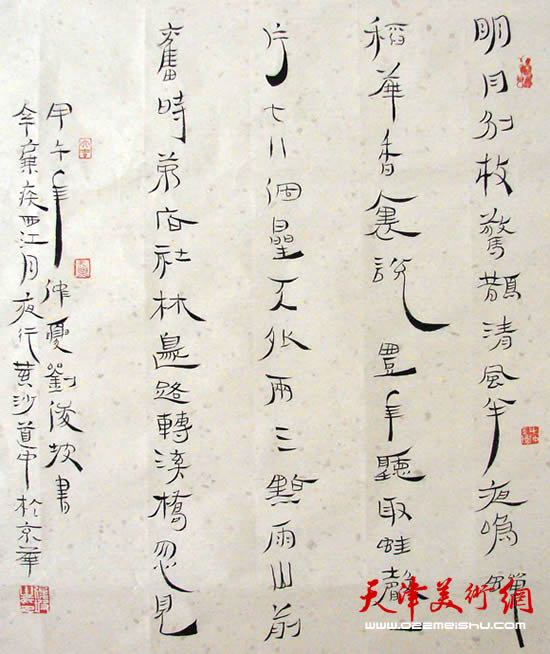 明月別枝驚鵲清風半夜鳴蟬
稻華香裏說豐年聽取蛙聲一
片七八個星天外兩三點雨山前
舊時茅店社林邊路轉溪橋忽見
甲午年仲夏劉俊坡書
辛棄疾西江月夜行黃沙道中於京華
天津美術網
www.022meishu.com